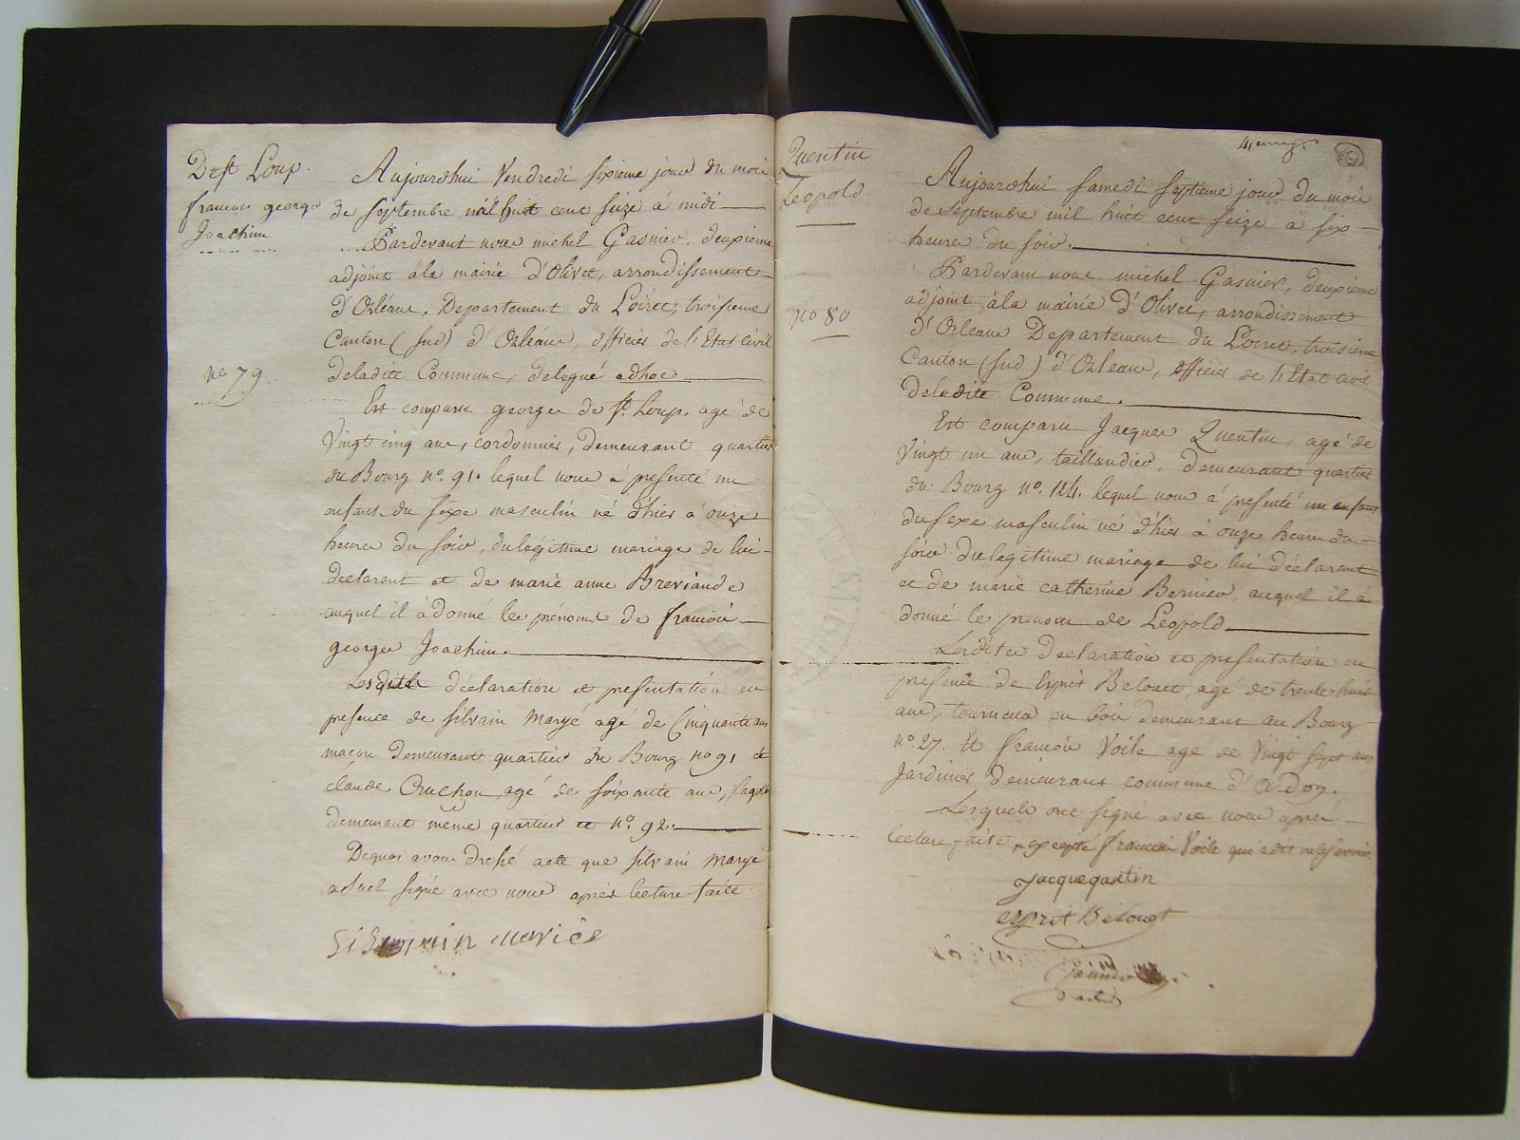 De St Loup.
francois george
Joachim
no 79
Aujourdhui Vendredi sixieme jour du mois
de septembre mil huit cent seize a midi
Pardevant nous michel Gasnier, deuxieme
adjoint àla mairie d'Olivet, arrondissement
d'Orléans, Departement du Loiret, troisieme
Canton (sud) d'Orléans, officier de l'Etat Civil
deladite Commune, delegué adhoc
Est comparu george de St. Loup, agé de
Vingt cinq ans, cordonnier, demeurant quartier
du Bourg no. 91. lequel nous à presenté un
enfant du sexe masculin né d'hier à onze
heures du soir, dulégitime mariage de lui
declarant et de marie anne Breviande
auquel il à donné les prénoms de francois
george Joachim.
Lesdites déclaration et présentation en
présence de silvain Margé agé de Cinquante ans
maçon demeurant quartier du Bourg no 91 et
claude Cruchon, agé de soixante ans,
demeurant meme quartier et no. 92.
Dequoi avons dressé acte que silvain Margé
a seul signé avec nous après lecture faite
Quentin
Leopold
no 80
Aujourdhui samedi septieme jour du mois
de septembre mil huit cent seize à six
heures du soir.
Pardevant nous michel Gasnier, deuxieme
adjoint àla mairie d'Olivet, arrondissement
d'Orleans Departement du Loiret, troisieme
Canton (sud) d'Orleans, officier de l'Etat civil
deladite Commune.
Est comparu Jacques Quentin, agé de
Vingt un ans, taillandier, demeurant quartier
du Bourg no. 124. lequel nous à presenté un enfant
dusexe masculin né d'hier à onze heures du
soir dulegitime mariage de lui déclarant
et de marie catherine Bernier auquel il à
donné le prenom de Léopold
Lesdites declaration et présentation en
présence de Esprit Belouet agé de trente huit
ans, tourneur en bois demeurant au Bourg
no. 27. et francois Voile agé de Vingt sept ans
Jardinier demeurant commune d'Ardon.
Lesquels ont signé avec nous après
lecture faite, excepté francois Voile qui a dit nelesavoir
Jacquequantin
esprit Belouet